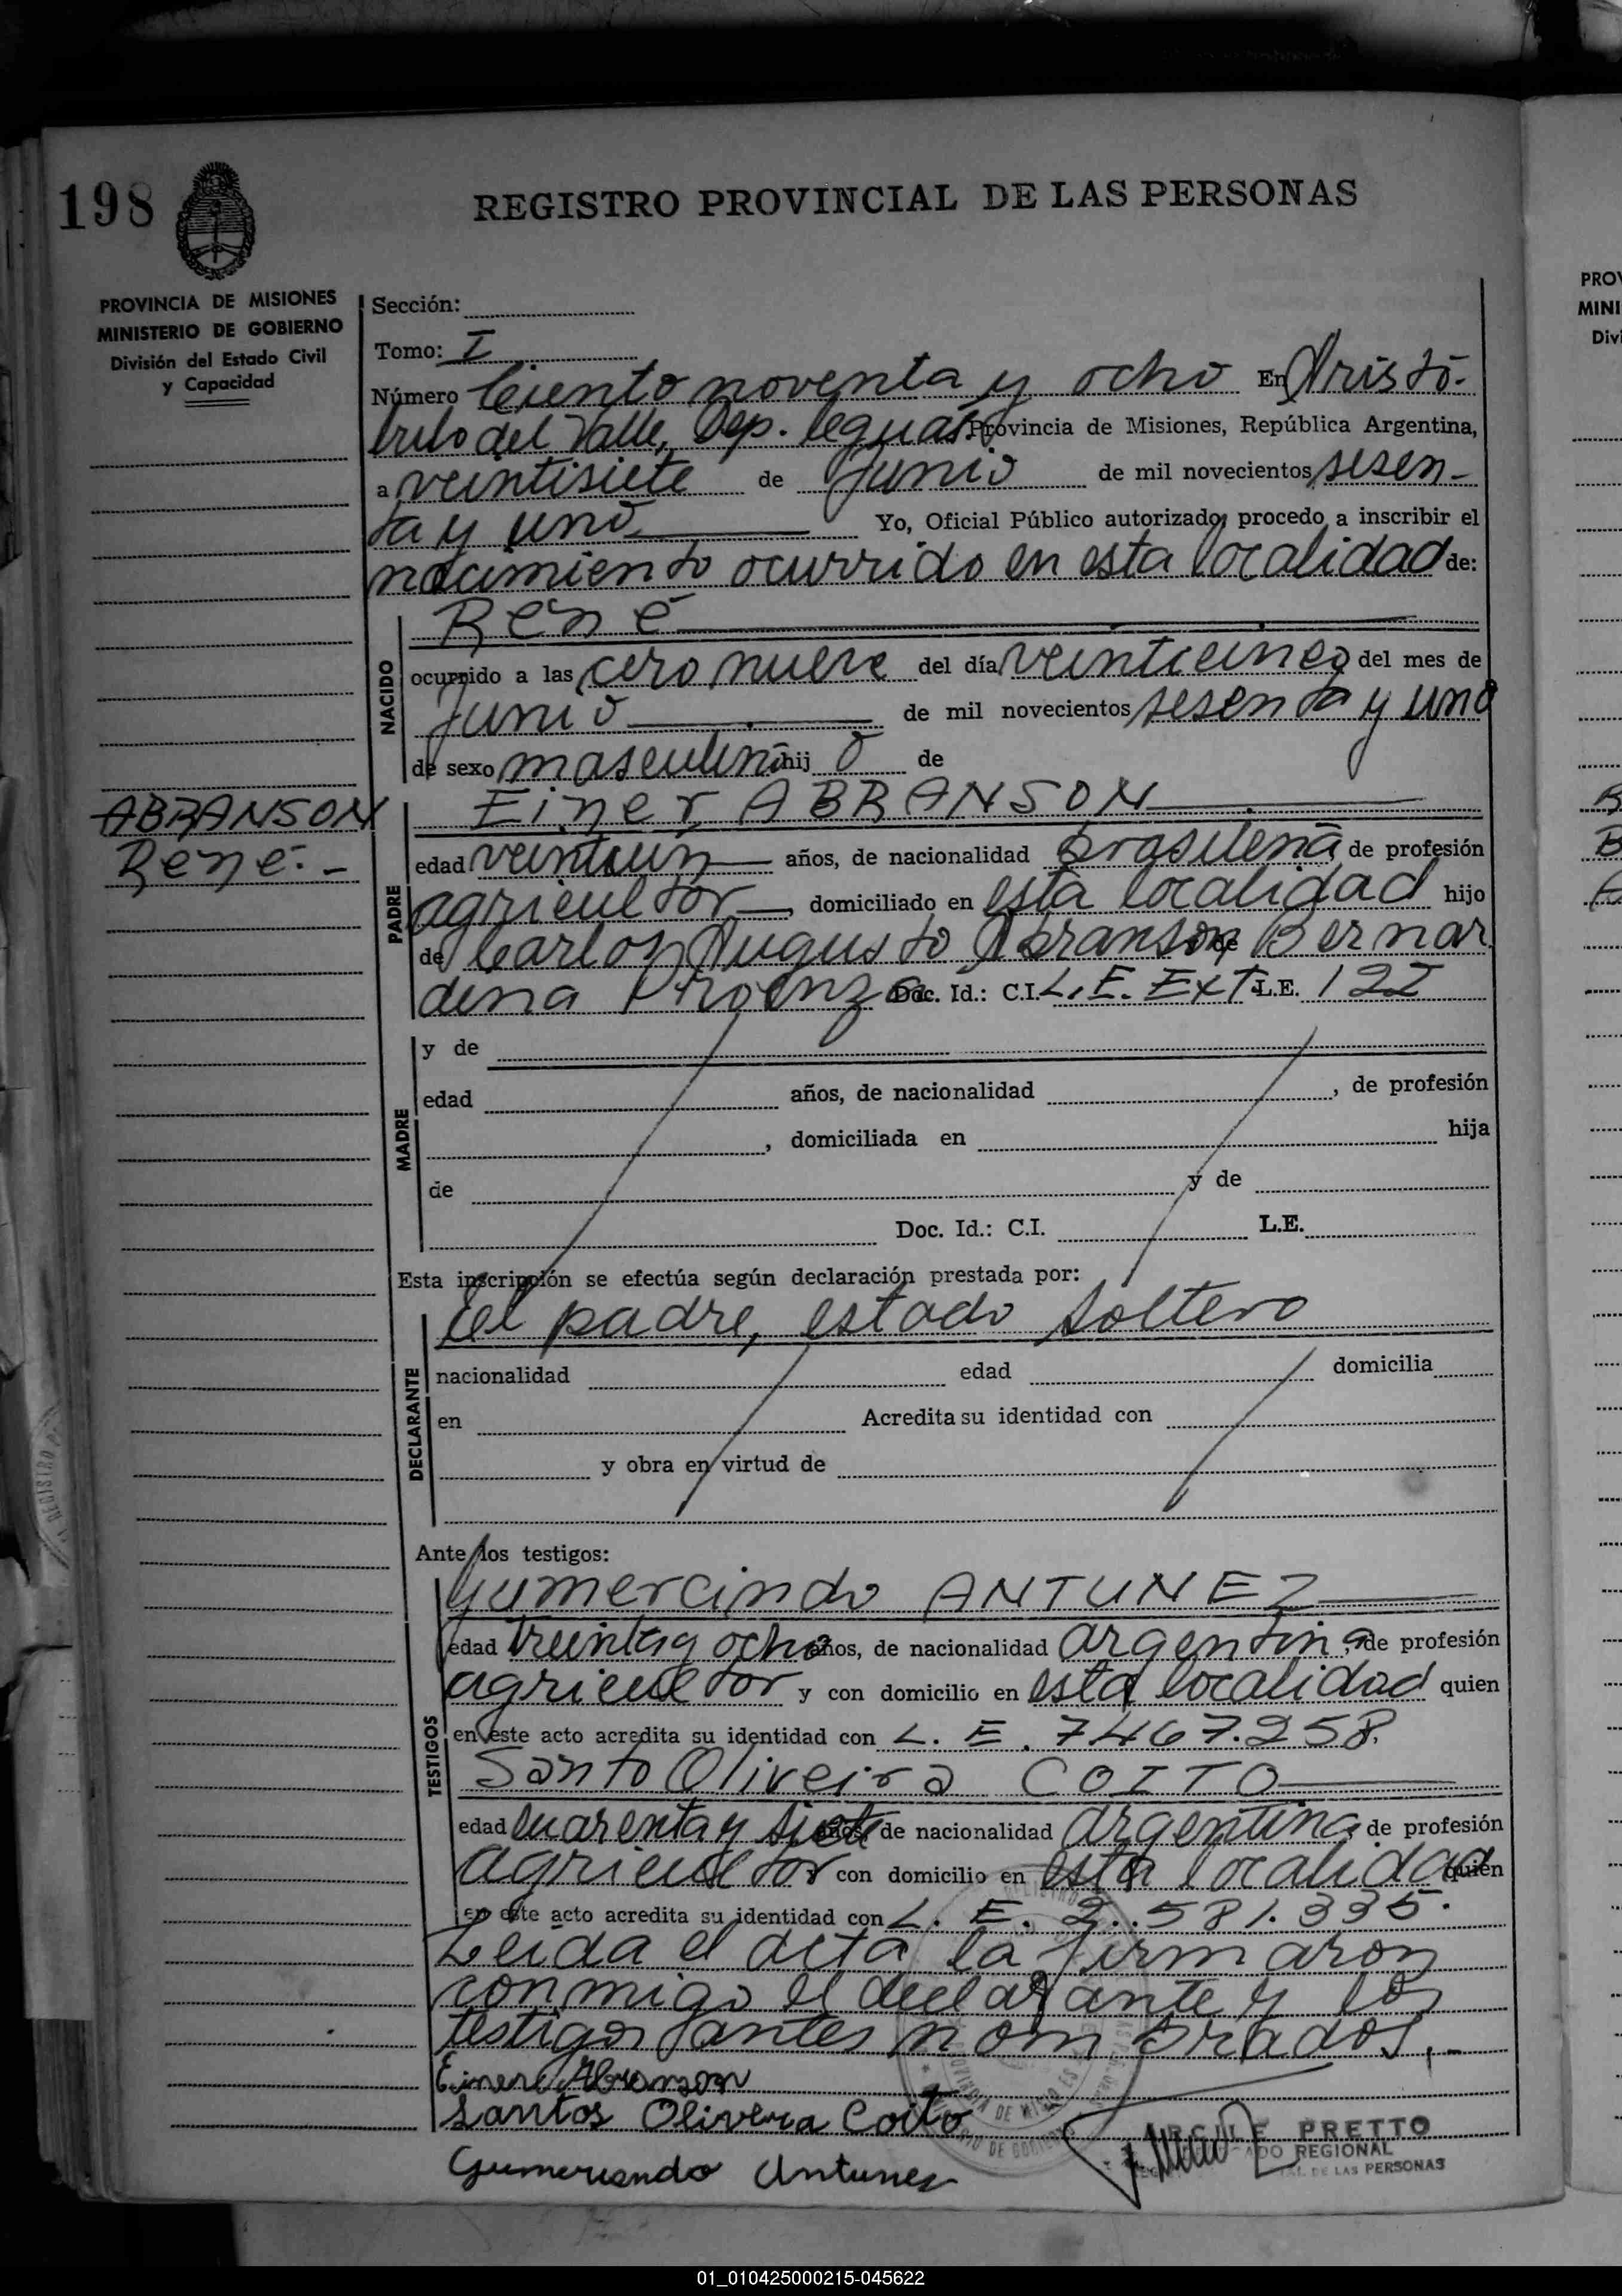 198
REGISTRO PROVINCIAL DE LAS PERSONAS
PROVINCIA DE MISIONES
MINISTERIO DE GOBIERNO
División del Estado Civil
y Capacidad
Sección:
Tomo: I
Número Ciento noventa y ocho En Aristó-
bulo del Valle, Dep. Provincia de Misiones, República Argentina,
a veintisiete de Junio de mil novecientos sesen-
ta y uno Yo, Oficial Público autorizado, procedo a inscribir el
nacimiento ocurrido en esta localidad de:
NACIDO
René
ocurrido a las cero nueve del día veinticinco del mes de
Junio de mil novecientos sesenta y uno
de sexo masculino hij o de
ABRANSON
René.-
PADRE
Einer ABRANSON
edad veintiún años, de nacionalidad brasileña, de profesión
agricultor, domiciliado en esta localidad hijo
de Carlos Augusto Abranson de Bernar
dina Doc. Id.: C.I. L.E. Ext. L.E. 122
MADRE
y de
edad años, de nacionalidad , de profesión
, domiciliada en hija
de y de
Doc. Id.: C.I. L.E.
Esta inscripción se efectúa según declaración prestada por:
DECLARANTE
el padre, estado soltero
nacionalidad edad domicilia
en Acredita su identidad con
y obra en virtud de
Ante los testigos:
TESTIGOS
Gumercindo ANTUNEZ
edad treinta y ocho años, de nacionalidad argentina, de profesión
agricultor y con domicilio en esta localidad quien
en este acto acredita su identidad con L. E. 7467.258.
Santo Oliveira COITO
edad cuarenta y siete años, de nacionalidad argentina, de profesión
agricultor con domicilio en esta localidad quien
en este acto acredita su identidad con L. E. 2.581.335.
Leida el acta la firmaron
conmigo el declarante y los
testigos antes nombrados.-
Einer Abranson
Santos Olivera Coito
Gumersindo Antunez
PRETTO
REGIONAL
DE LAS PERSONAS
PROV
MINI
Divi
01_010425000215-045622